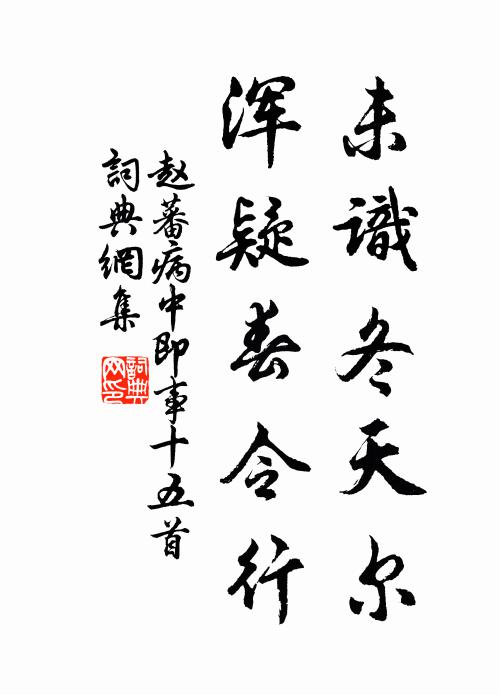 未識冬天尔
浑疑春令行
赵蕃病中即事十五首
詞典網集
詞典网印